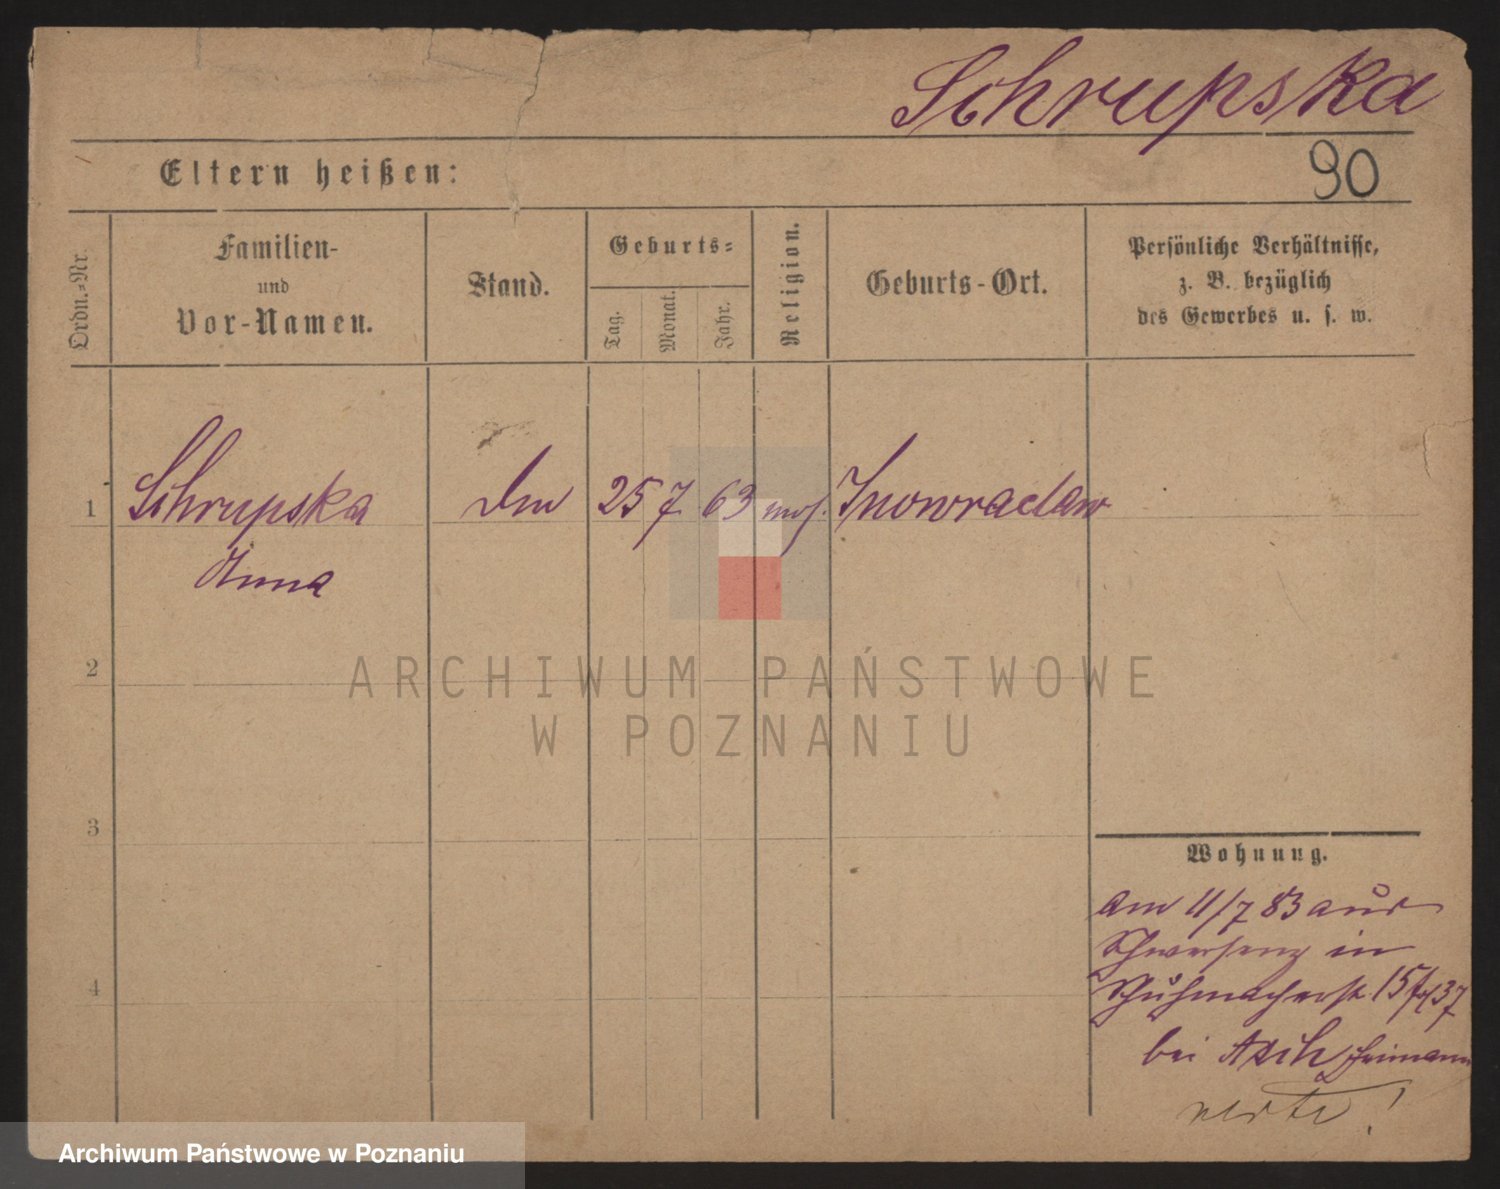 Schrupska
90
Eltern heißen:
Ordn.-Nr.
Familien-
und
Vor-Namen.
Stand.
Geburts-
Tag.
Monat.
Jahr.
Religion.
Geburts-Ort.
Persönliche Verhältnisse,
z. B. bezüglich
des Gewerbes u. s. w.
1 Schrupska 25 7 63 mos. Inowraclaw
Anna
2
ARCHIWUM PAŃSTWOWE
W POZNANIU
3
Wohnung.
am 11/7 83 aus
Schwersenz in
4
Schuhmacherstr. 15
bei Asch
verte!
Archiwum Państwowe w Poznaniu